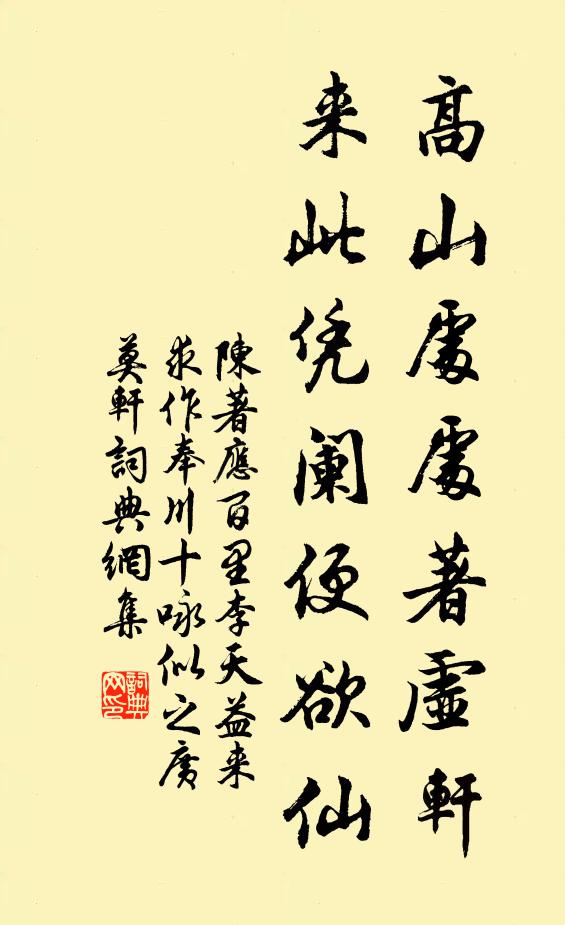 高山處處著虛軒
来此凭闌便欲仙
陳著應百里李天益来
求作奉川十咏似之廣
莫軒詞典網集
詞典网印